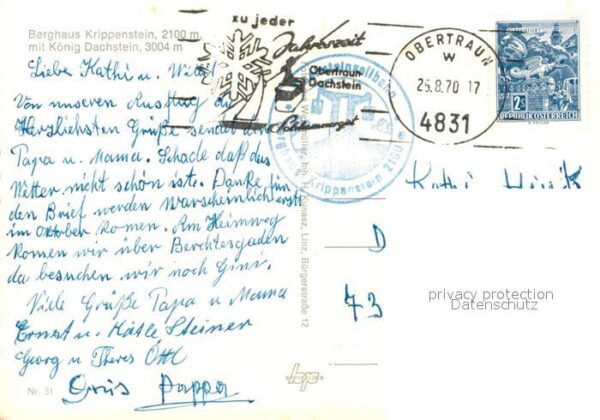 Berghaus Krippenstein, 2100 m,
mit König Dachstein, 3004 m
zu jeder
Jahreszeit
Obertraun
Dachstein
OBERTRAUN
W
25.8.70 17
4831
2S
REPUBLIK ÖSTERREICH
Krippenstein 2100 m
Liebe Kathi u. Willi
Von unseren Ausflug die
Herzlichsten Grüße senden dir
Papa u. Mama. Schade daß das
Wetter nicht schön ists. Danke für
den Brief werden Warscheinlich erst
im Oktober Komen. Am Heimweg
Komen wir über Berchtesgaden
da besuchen wir noch Gini.
Viele Grüße Papa u Mama
Ernst u. Käthe Steiner
Georg u Theres Öttl
Grüs Pappa
Kathi
D
73
Linz, Bürgerstraße 12
Nr. 31
privacy protection
Datenschutz